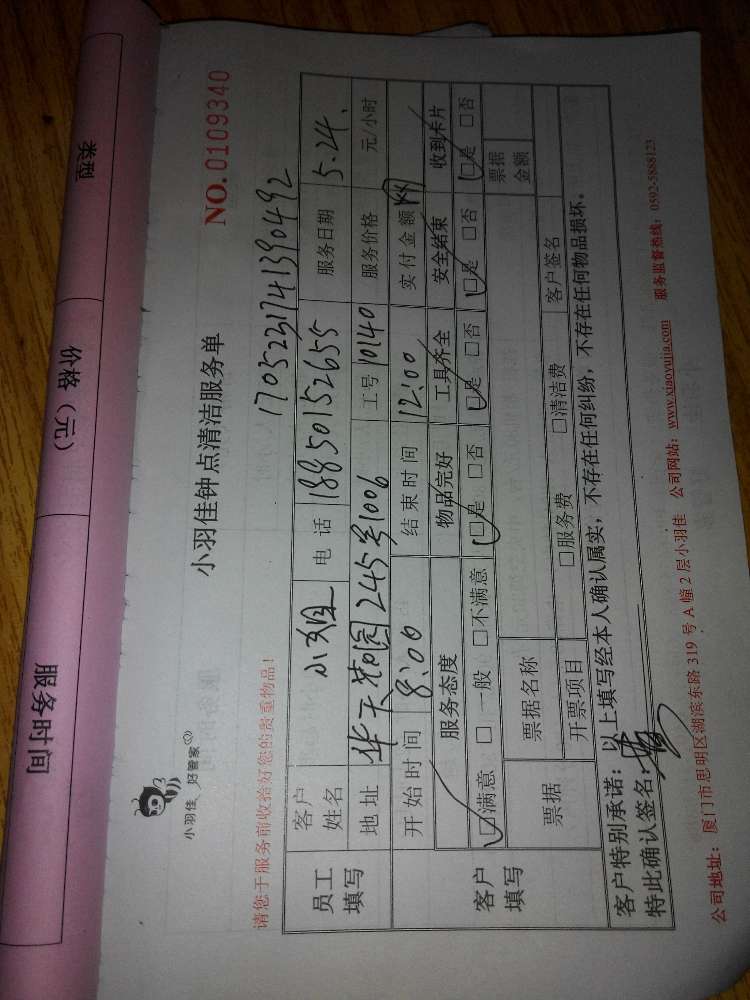 类型 价格（元） 服务时间
小羽佳 好管家
小羽佳钟点清洁服务单 NO.0109340
请您于服务前收拾好您的贵重物品！ 1705231741390492
员工填写 客户姓名 小姐 电话 18850152655 服务日期 5.24.
地址 华天花园245号1006 工号 10140 服务价格 元/小时
客户填写 开始时间 8:00 结束时间 12:00 实付金额
服务态度 物品完好 工具齐全 安全结束 收到卡片
☑满意 □一般 □不满意 ☑是 □否 ☑是 □否 ☑是 □否 ☑是 □否
票据 票据名称 票据金额
开票项目 □服务费 □清洁费 客户签名
客户特别承诺：以上填写经本人确认属实，不存在任何纠纷，不存在任何物品损坏。
特此确认签名：
公司地址：厦门市思明区湖滨东路319号A幢2层小羽佳 公司网站：www.xiaoyujia.com 服务监督热线：0592-5888123